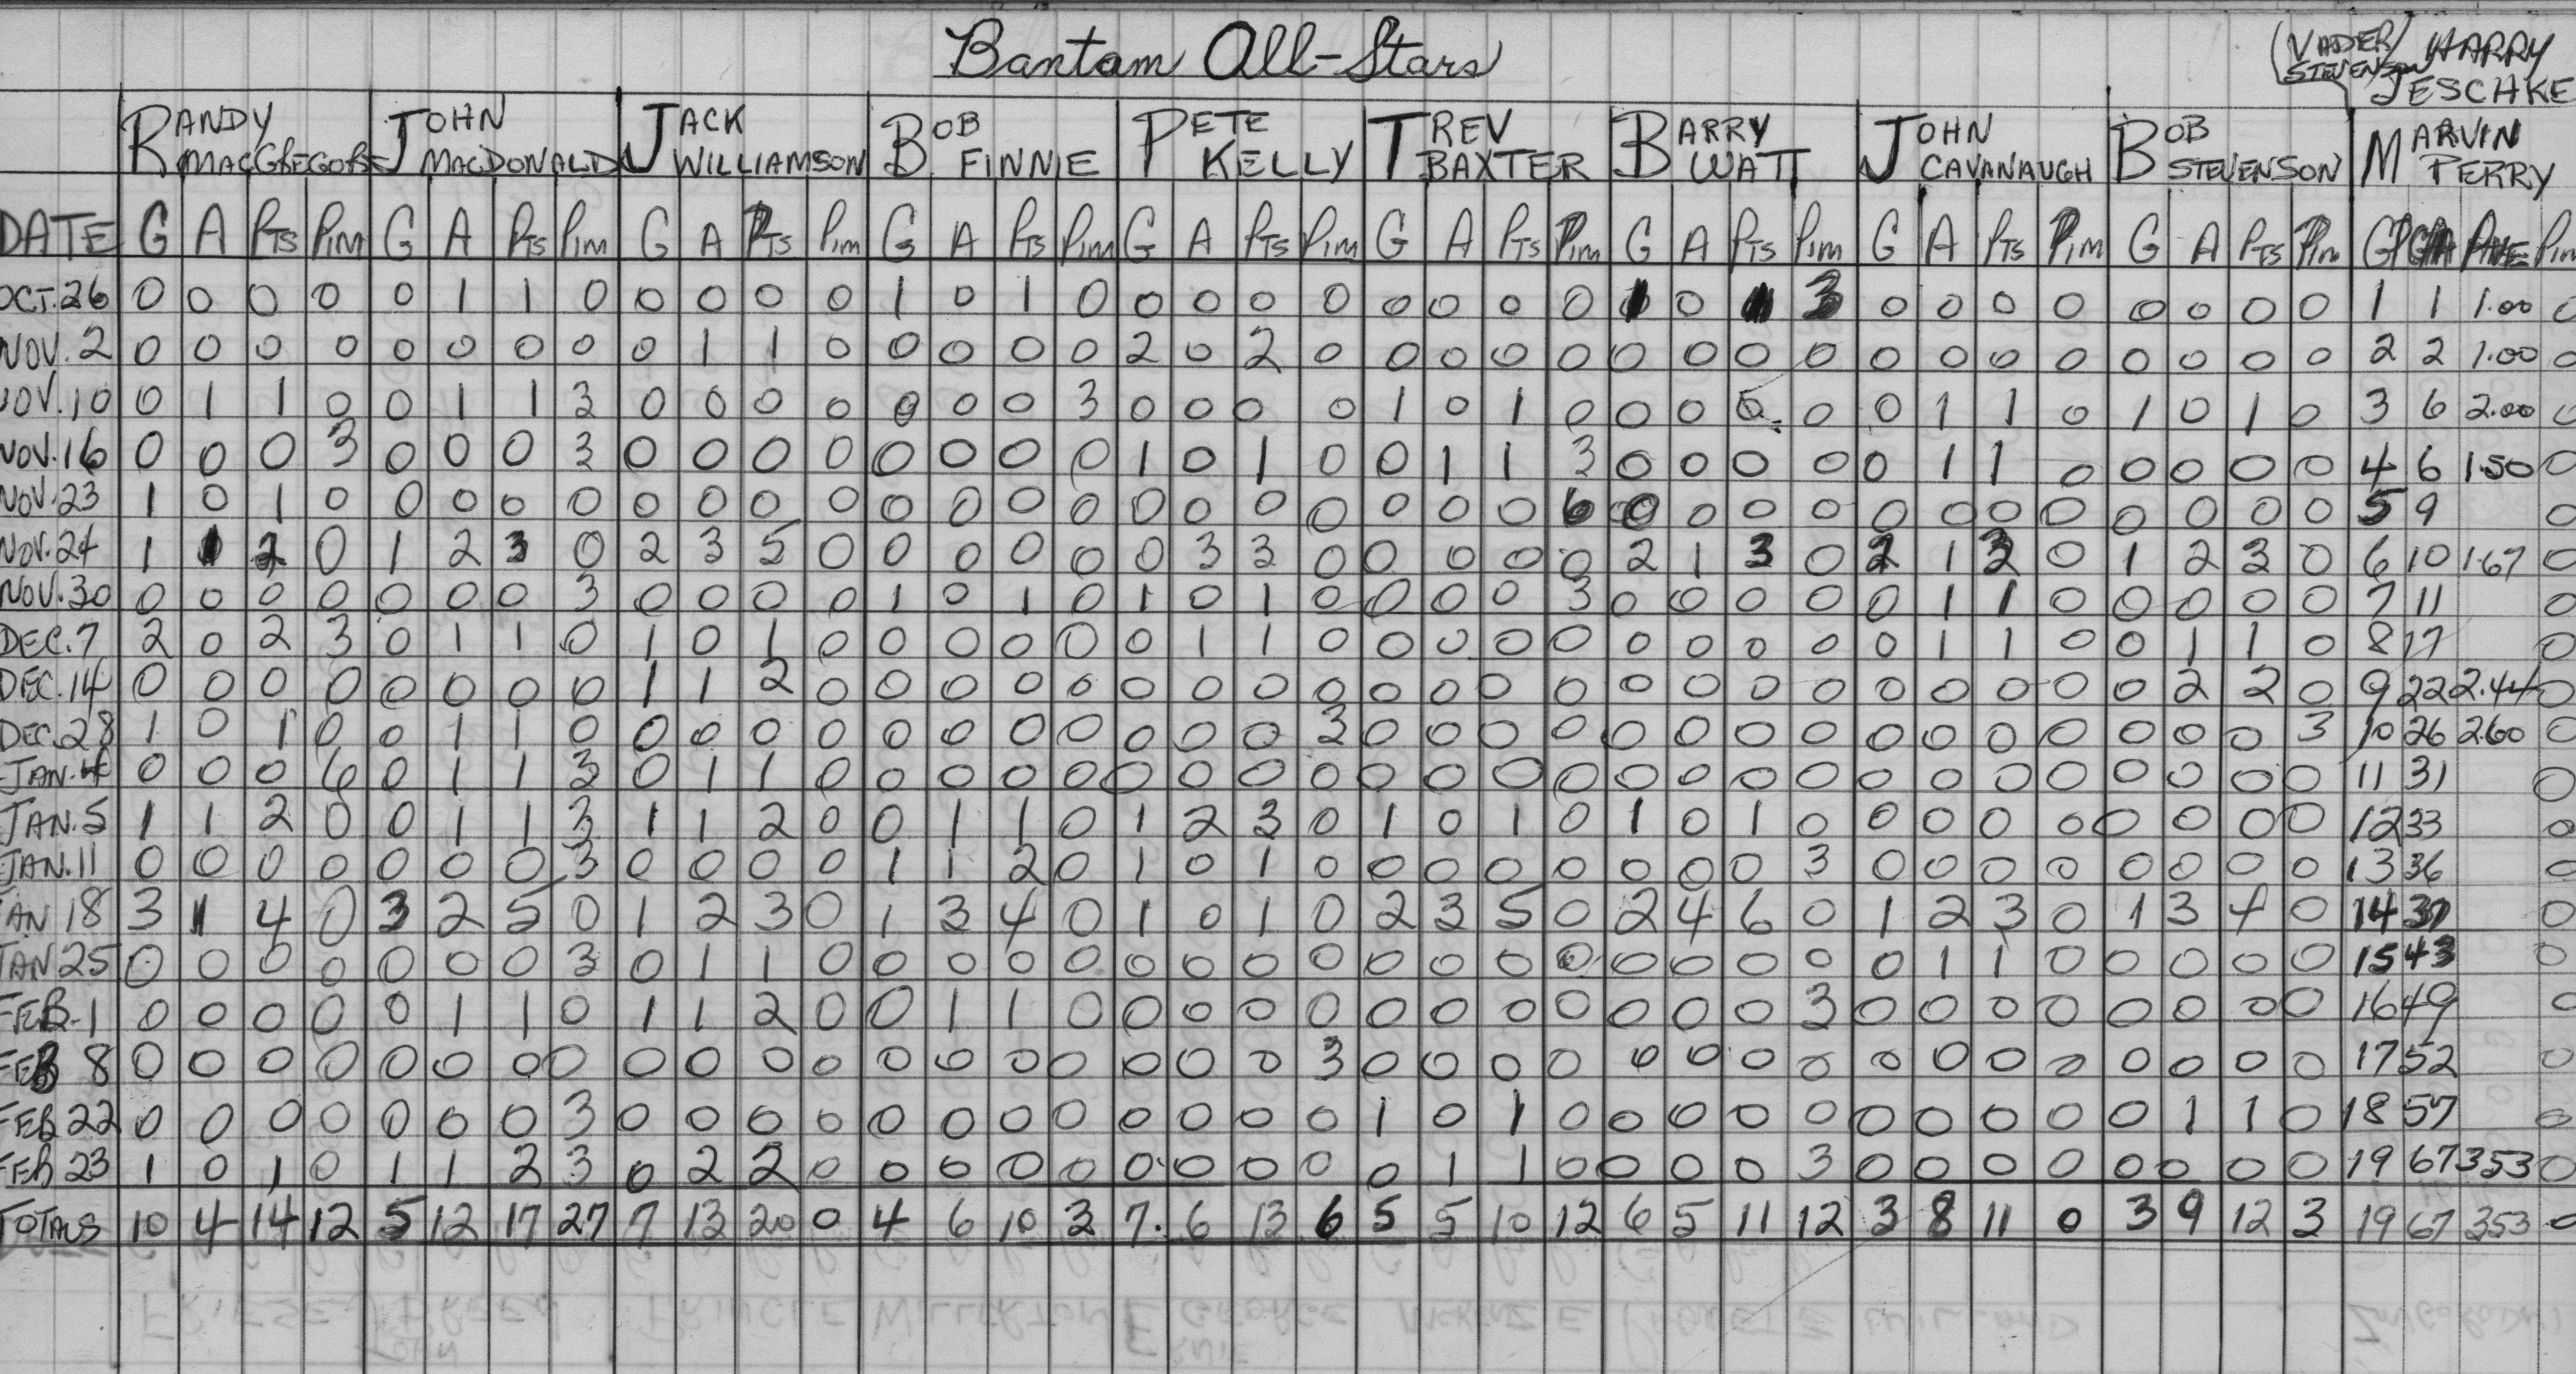 Bantam All-Stars
(VADER STEVENSON) HARRY JESCHKE
RANDY MACGREGOR JOHN MACDONALD JACK WILLIAMSON BOB FINNIE PETE KELLY TREV BAXTER BARRY WATT JOHN CAVANAUGH BOB STEVENSON MARVIN PERRY
DATE G A PTS PIM G A PTS PIM G A PTS PIM G A PTS PIM G A PTS PIM G A PTS PIM G A PTS PIM G A PTS PIM G A PTS PIM GP GA AVE PIM
OCT. 26 0 0 0 0 0 1 1 0 0 0 0 0 1 0 1 0 0 0 0 0 0 0 0 0 1 0 1 3 0 0 0 0 0 0 0 0 1 1 1.00 0
NOV. 2 0 0 0 0 0 0 0 0 0 1 1 0 0 0 0 0 2 0 2 0 0 0 0 0 0 0 0 0 0 0 0 0 0 0 0 0 2 2 1.00 0
NOV. 10 0 1 1 0 0 1 1 3 0 0 0 0 0 0 0 3 0 0 0 0 1 0 1 0 0 0 0 0 0 1 1 0 1 0 1 0 3 6 2.00 0
NOV. 16 0 0 0 3 0 0 0 3 0 0 0 0 0 0 0 0 1 0 1 0 0 1 1 3 0 0 0 0 0 1 1 0 0 0 0 0 4 6 1.50 0
NOV. 23 1 0 1 0 0 0 0 0 0 0 0 0 0 0 0 0 0 0 0 0 0 0 0 6 0 0 0 0 0 0 0 0 0 0 0 0 5 9 0
NOV. 24 1 1 2 0 1 2 3 0 2 3 5 0 0 0 0 0 0 3 3 0 0 0 0 0 2 1 3 0 2 1 3 0 1 2 3 0 6 10 1.67 0
NOV. 30 0 0 0 0 0 0 0 3 0 0 0 0 1 0 1 0 1 0 1 0 0 0 0 3 0 0 0 0 0 1 1 0 0 0 0 0 7 11 0
DEC. 7 2 0 2 3 0 1 1 0 1 0 1 0 0 0 0 0 0 1 1 0 0 0 0 0 0 0 0 0 0 1 1 0 0 1 1 0 8 17 0
DEC. 14 0 0 0 0 0 0 0 0 1 1 2 0 0 0 0 0 0 0 0 0 0 0 0 0 0 0 0 0 0 0 0 0 0 2 2 0 9 22 2.44 0
DEC. 28 1 0 1 0 0 1 1 0 0 0 0 0 0 0 0 0 0 0 0 3 0 0 0 0 0 0 0 0 0 0 0 0 0 0 0 3 10 26 2.60 0
JAN. 4 0 0 0 6 0 1 1 3 0 1 1 0 0 0 0 0 0 0 0 0 0 0 0 0 0 0 0 0 0 0 0 0 0 0 0 0 11 31 0
JAN. 5 1 1 2 0 0 1 1 3 1 1 2 0 0 1 1 0 1 2 3 0 1 0 1 0 1 0 1 0 0 0 0 0 0 0 0 0 12 33 0
JAN. 11 0 0 0 0 0 0 0 3 0 0 0 0 1 1 2 0 1 0 1 0 0 0 0 0 0 0 0 3 0 0 0 0 0 0 0 0 13 36 0
JAN 18 3 1 4 0 3 2 5 0 1 2 3 0 1 3 4 0 1 0 1 0 2 3 5 0 2 4 6 0 1 2 3 0 1 3 4 0 14 37 0
JAN 25 0 0 0 0 0 0 0 3 0 1 1 0 0 0 0 0 0 0 0 0 0 0 0 0 0 0 0 0 0 1 1 0 0 0 0 0 15 43 0
FEB. 1 0 0 0 0 0 1 1 0 1 1 2 0 0 1 1 0 0 0 0 0 0 0 0 0 0 0 0 3 0 0 0 0 0 0 0 0 16 49 0
FEB 8 0 0 0 0 0 0 0 0 0 0 0 0 0 0 0 0 0 0 0 3 0 0 0 0 0 0 0 0 0 0 0 0 0 0 0 0 17 52 0
FEB 22 0 0 0 0 0 0 0 3 0 0 0 0 0 0 0 0 0 0 0 0 1 0 1 0 0 0 0 0 0 0 0 0 0 1 1 0 18 57 0
FEB 23 1 0 1 0 1 1 2 3 0 2 2 0 0 0 0 0 0 0 0 0 0 1 1 0 0 0 0 3 0 0 0 0 0 0 0 0 19 67 353 0
TOTALS 10 4 14 12 5 12 17 27 7 13 20 0 4 6 10 3 7. 6 13 6 5 5 10 12 6 5 11 12 3 8 11 0 3 9 12 3 19 67 353 0